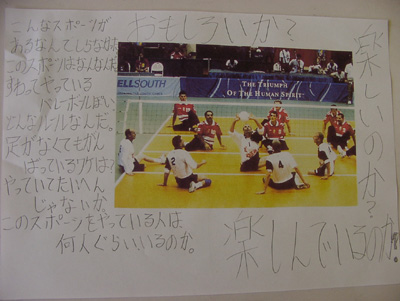 おもしろいか?
こんなスポーツが
あるなんてしらなかった
このスポーツはなんなんだ
すわってやっている
バレーボールぽい
どんなルールなんだ。
足がなくてもがん
ばっているワケは?
やっていてたいへん
じゃないか。
このスポーツをやっている人は
何人ぐらいいるのか。
楽しいのか?
楽しんでいるのか。
ELLSOUTH
THE TRIUMPH
OF THE HUMAN SPIRIT
2
4